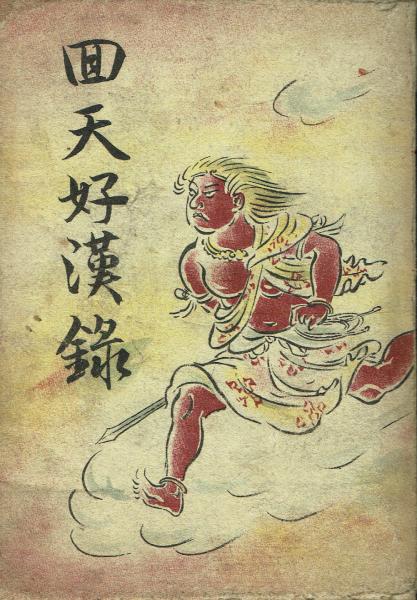 回天好漢錄